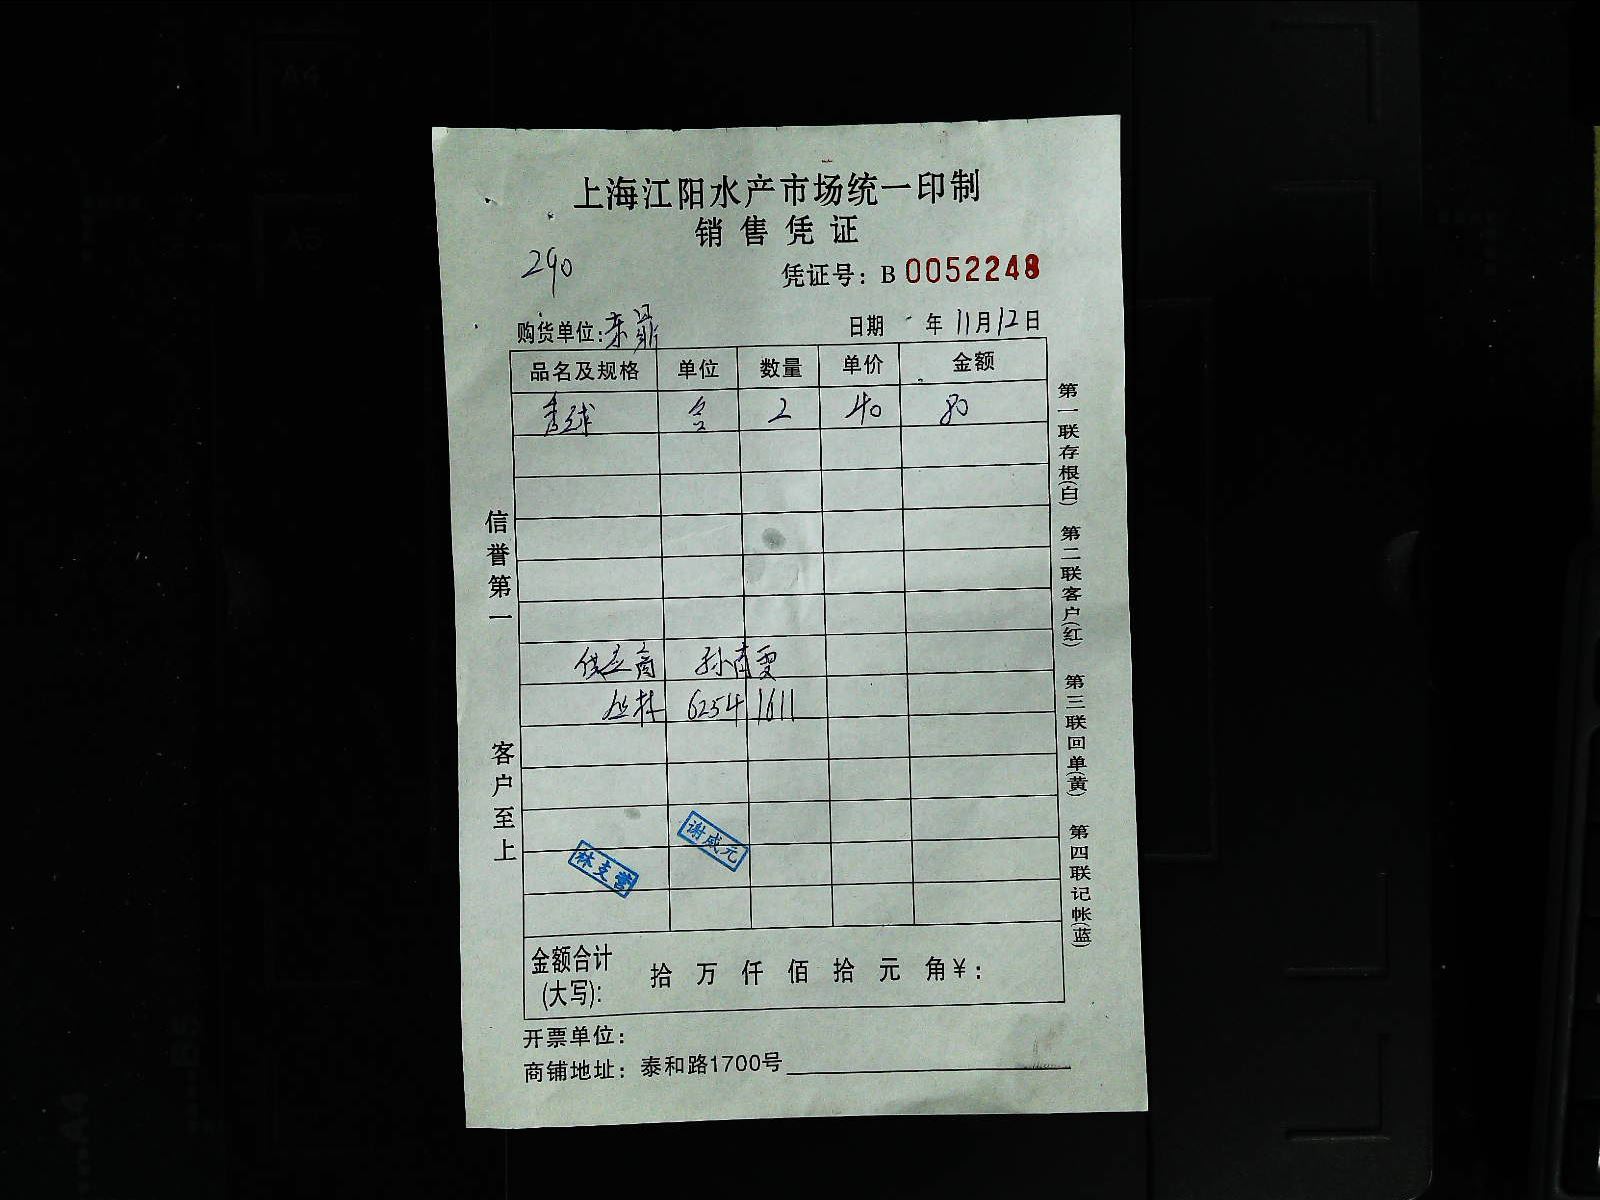 上海江阳水产市场统一印制
销售凭证
290
凭证号：B 0052248
购货单位：东鼎 日期 年 11月12日
品名及规格 单位 数量 单价 金额
青球 2 40 80
供应商 孙青雯
丛林 62541611
谢成元
林支营
金额合计(大写)： 拾 万 仟 佰 拾 元 角 ¥：
开票单位：
商铺地址：泰和路1700号
信誉第一 客户至上
第一联存根(白) 第二联客户(红) 第三联回单(黄) 第四联记帐(蓝)